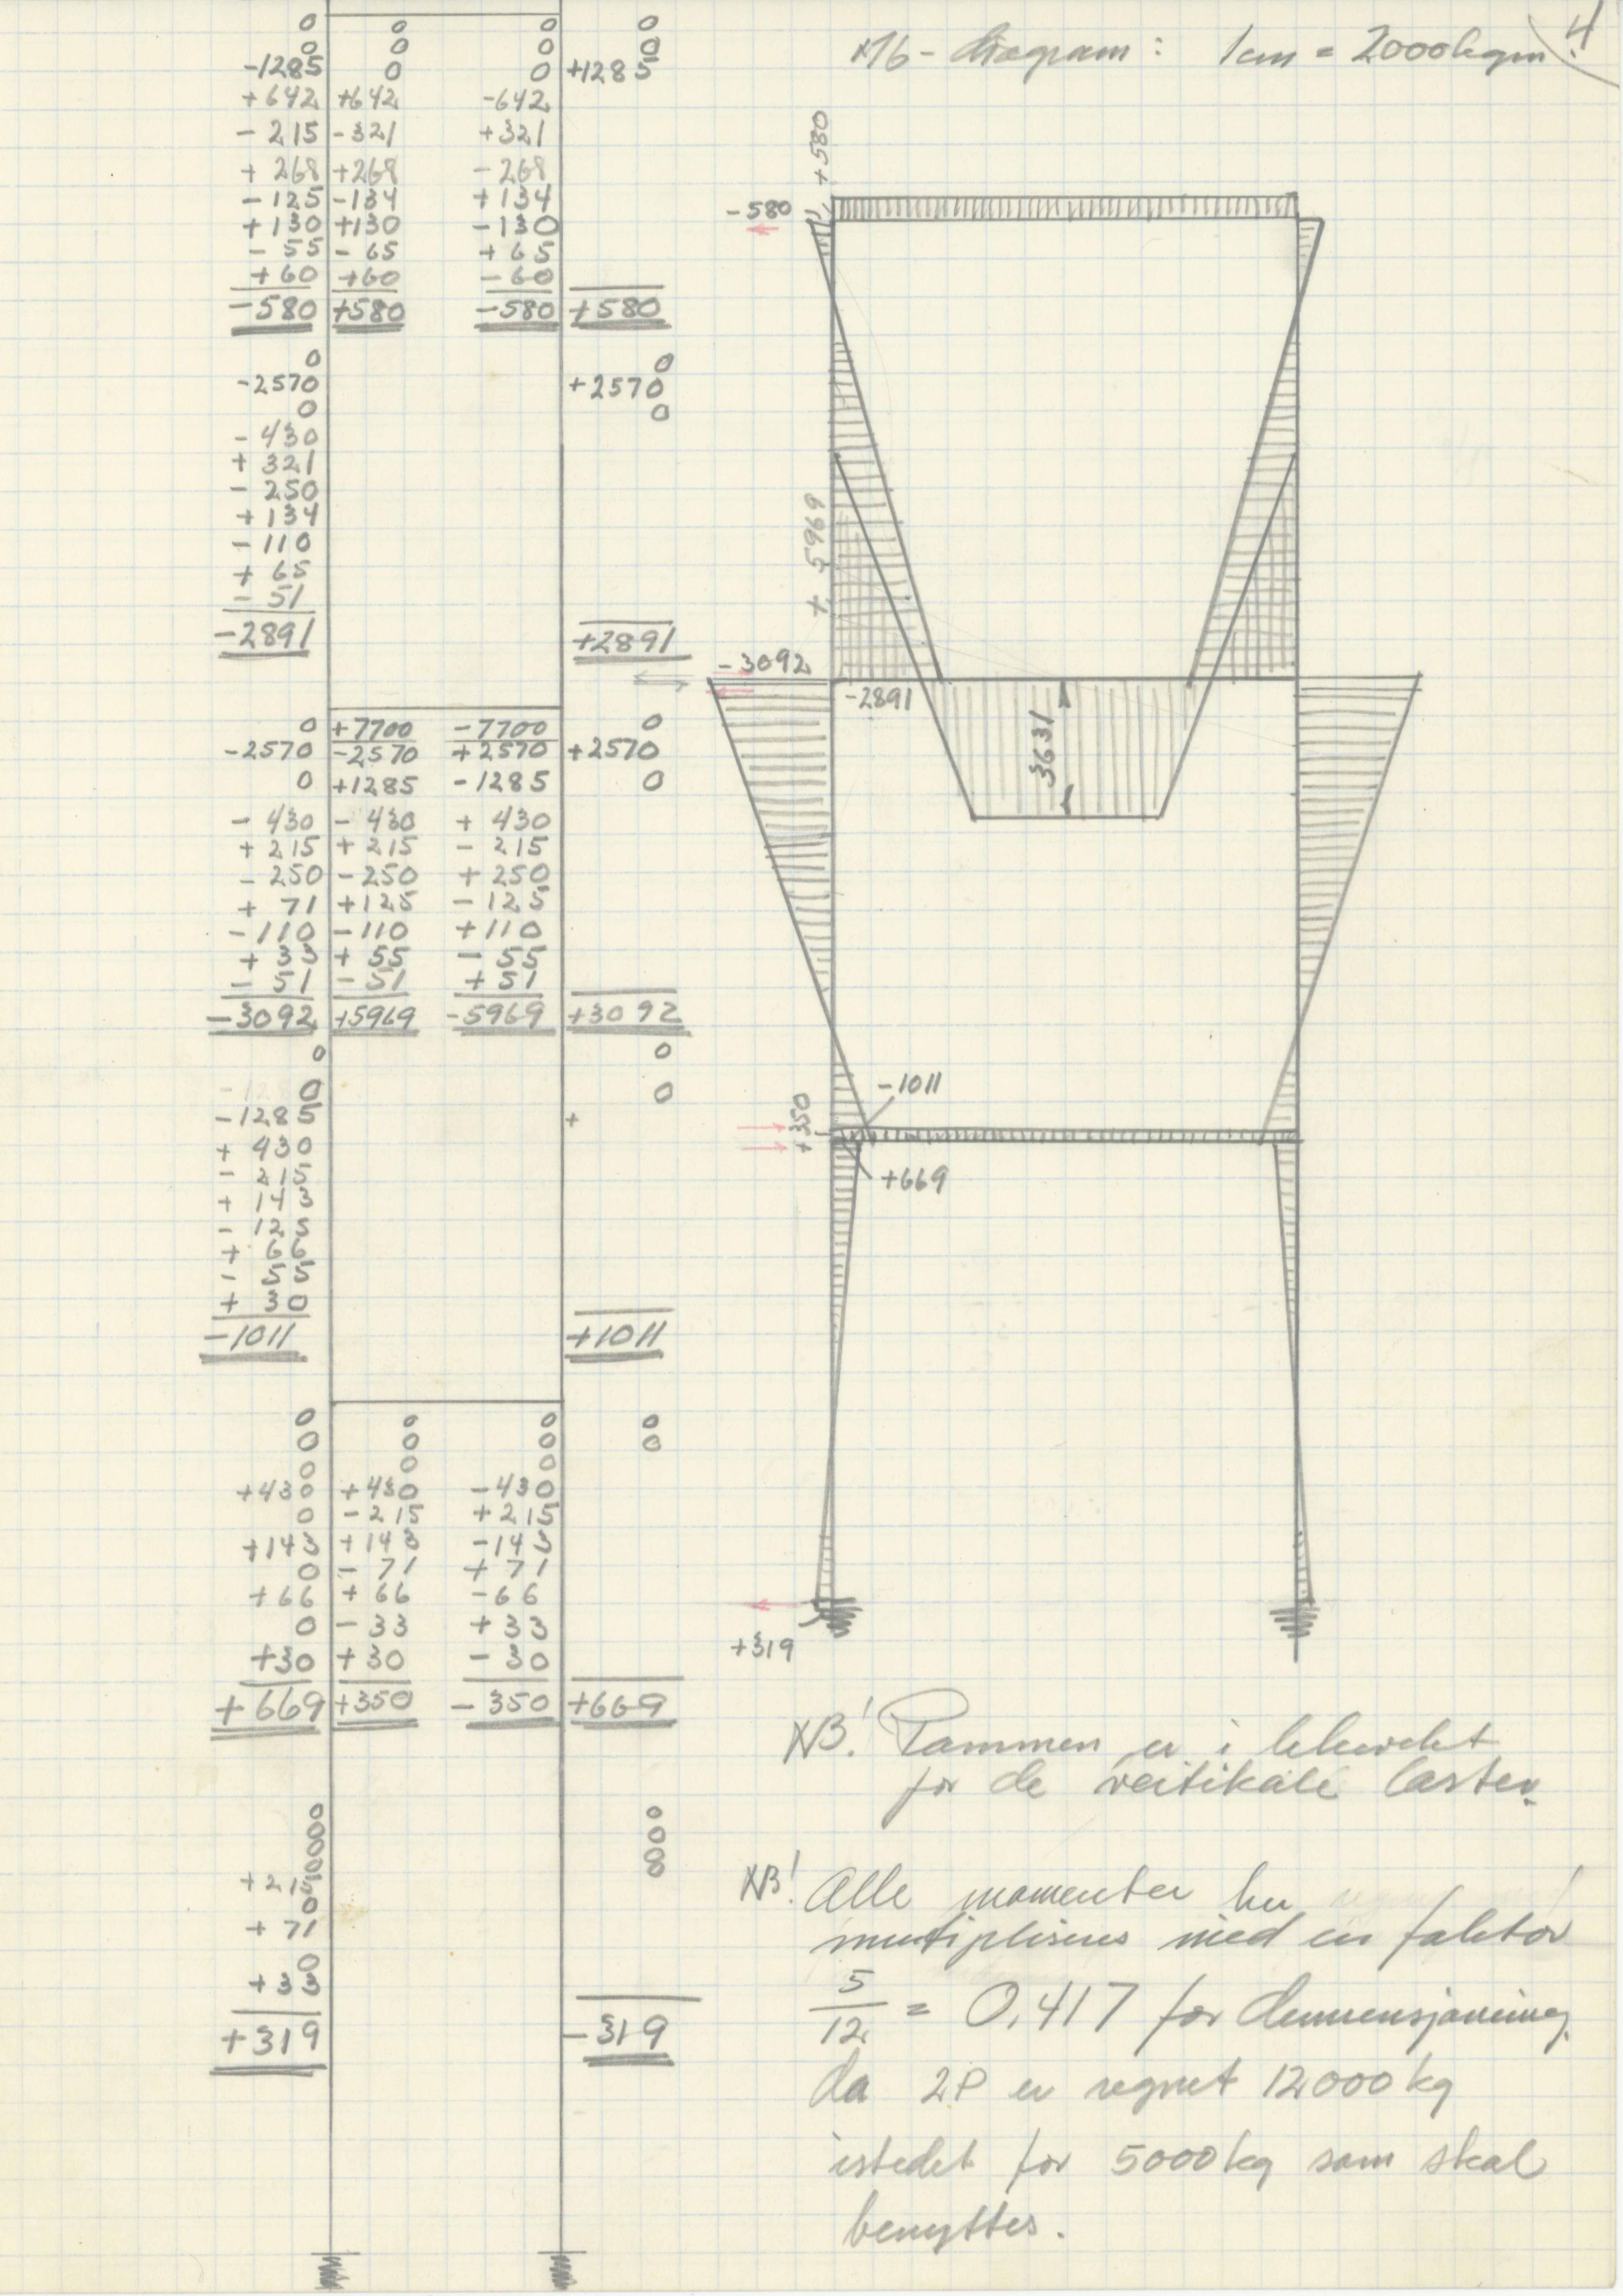 M6-diagram: 1cm = 2000kgm. 4
0 0 0 0
0 0 0 0
-1285 0 0 +1285
+642 +642 -642
-215 -321 +321
+268 +268 -268
-125 -134 +134
+130 +130 -130
-55 -65 +65
+60 +60 -60
-580 +580 -580 +580
0 0
-2570 +2570
0 0
-430
+321
-250
+134
-110
+65
-51
-2891 +2891
0 +7700 -7700 0
-2570 -2570 +2570 +2570
0 +1285 -1285 0
-430 -430 +430
+215 +215 -215
-250 -250 +250
+71 +125 -125
-110 -110 +110
+33 +55 -55
-51 -51 +51
-3092 +5969 -5969 +3092
0 0
0 0
-1285 +
+430
-215
+143
-125
+66
-55
+30
-1011 +1011
0 0 0 0
0 0 0 0
0 0 0
+430 +430 -430
0 -215 +215
+143 +143 -143
0 -71 +71
+66 +66 -66
0 -33 +33
+30 +30 -30
+669 +350 -350 +669
0 0
0 0
0 0
0 0
+215
0
+71
0
+33
+319 -319
+580
-580
+5969
-3092
-2891
3631
-1011
+350
+669
+319
NB! Rammen er i likevekt
for de vertikale laster.
NB! Alle momenter her
multipliseres med en faktor
5/12 = 0,417 for dimensjonering,
da 2P er regnet 12000 kg
istedet for 5000 kg som skal
benyttes.